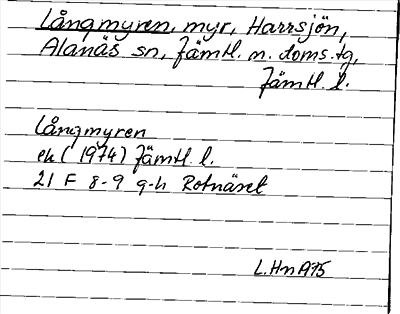 Långmyren, myr, Harrsjön,
Alanäs sn, Jämtl. n. doms.tg,
Jämtl. l.
Långmyren
ek (1974) Jämtl. l.
21 F 8-9 g-h Rotnäset
L.Hm 1975